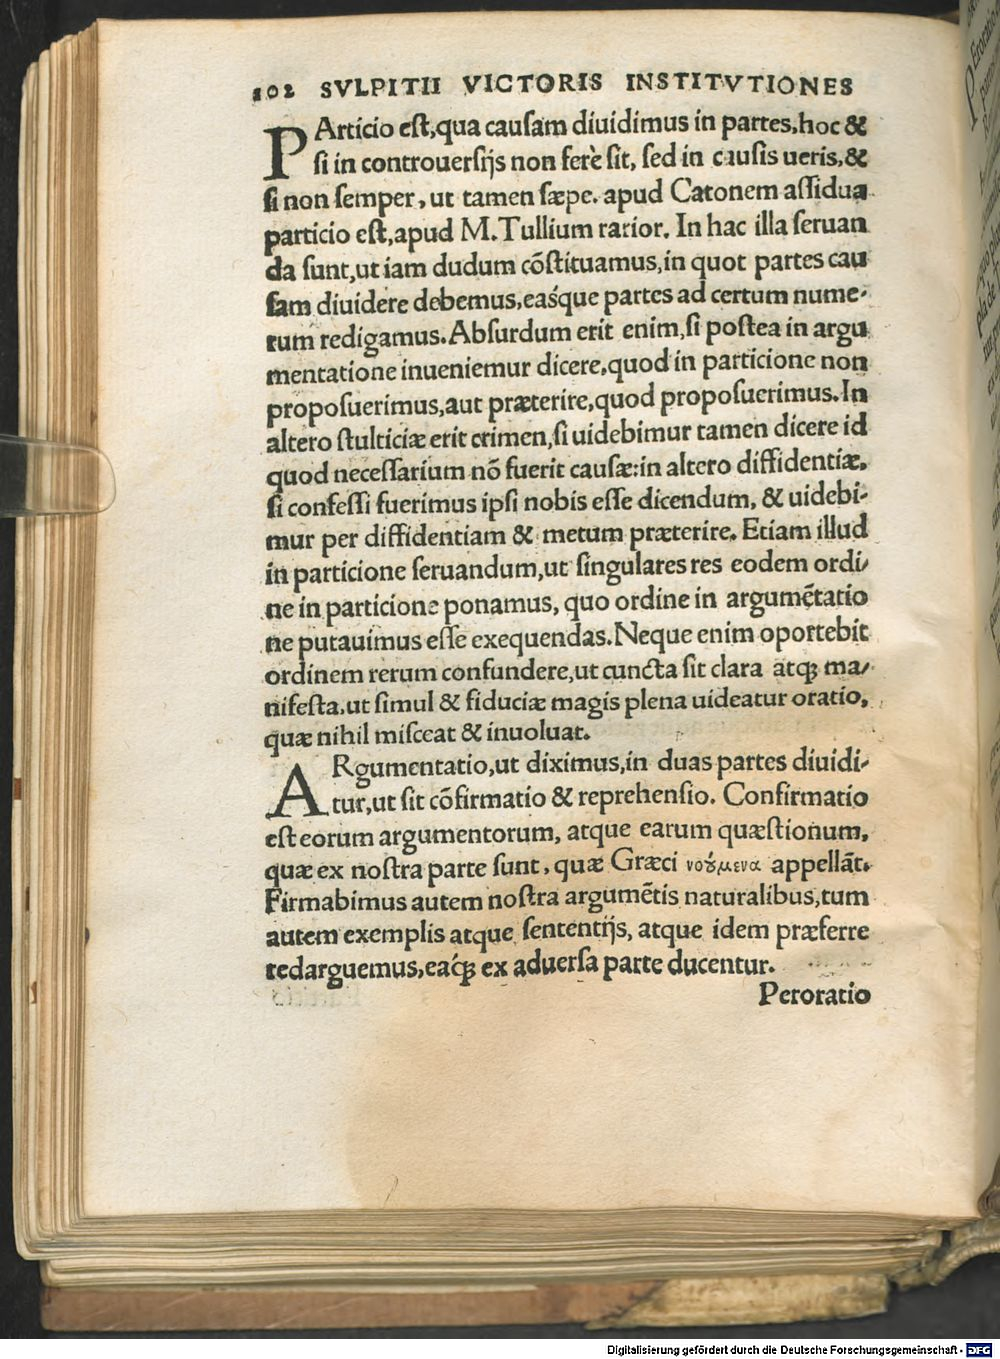 102 SVLPITII VICTORIS INSTITVTIONES
PArticio est,qua causam diuidimus in partes,hoc &
si in controuersijs non ferè sit, sed in causis ueris,&
si non semper, ut tamen sæpe. apud Catonem assidua
particio est,apud M.Tullium rarior. In hac illa seruan
da sunt,ut iam dudum cõstituamus,in quot partes cau
sam diuidere debemus,easq́ue partes ad certum nume-
rum redigamus. Absurdum erit enim,si postea in argu
mentatione inueniemur dicere,quod in particione non
proposuerimus,aut præterire,quod proposuerimus.In
altero stulticiæ erit crimen,si uidebimur tamen dicere id
quod necessarium nõ fuerit causæ:in altero diffidentiæ,
si confessi fuerimus ipsi nobis esse dicendum, & uidebi-
mur per diffidentiam & metum præterire. Etiam illud
in particione seruandum,ut singulares res eodem ordi-
ne in particione ponamus, quo ordine in argumẽtatio
ne putauimus esse exequendas. Neque enim oportebit
ordinem rerum confundere,ut cuncta sit clara atqꝫ ma-
nifesta.ut simul & fiduciæ magis plena uideatur oratio,
quæ nihil misceat & inuoluat.
ARgumentatio,ut diximus,in duas partes diuidi-
tur,ut sit cõfirmatio & reprehensio. Confirmatio
est eorum argumentorum, atque earum quæstionum,
quæ ex nostra parte sunt, quæ Græci νοȣ́μενα appellãt.
Firmabimus autem nostra argumẽtis naturalibus,tum
autem exemplis atque sententijs, atque idem præferre
redarguemus,eaq́ꝫ ex aduersa parte ducentur.
Peroratio
Digitalisierung gefördert durch die Deutsche Forschungsgemeinschaft - DFG